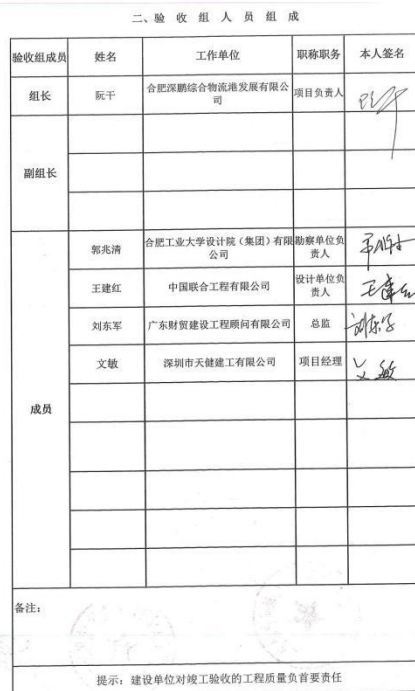 二、验 收 组 人 员 组 成
验收组成员 姓名 工作单位 职称职务 本人签名
组长 阮干 合肥深鹏综合物流港发展有限公
司 项目负责人
副组长
成员
郭兆清 合肥工业大学设计院（集团）有限
公司 勘察单位负
责人
王建红 中国联合工程有限公司 设计单位负
责人 王建红
刘东军 广东财贸建设工程顾问有限公司 总监
文敏 深圳市天健建工有限公司 项目经理 文敏
备注：
提示：建设单位对竣工验收的工程质量负首要责任